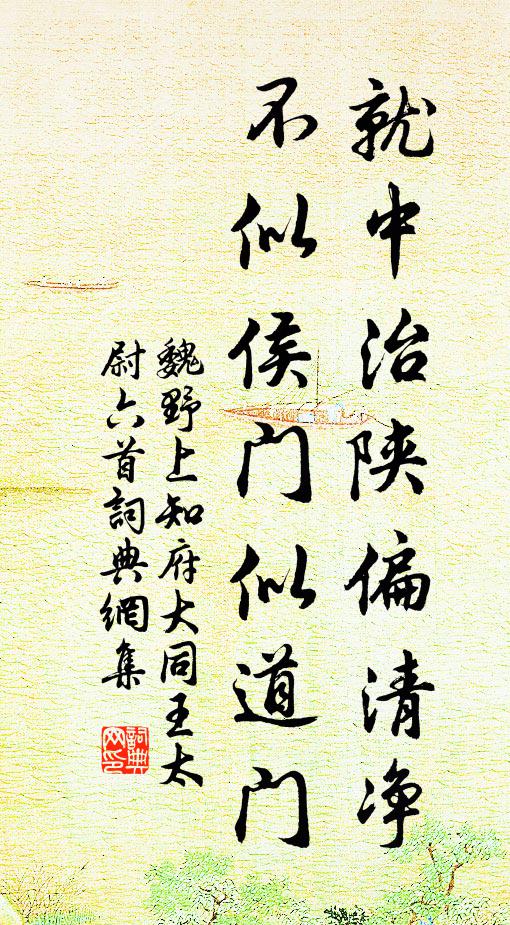 就中治陕偏清净
不似侯门似道门
魏野上知府大同王太
尉六首詞典網集
詞典網印